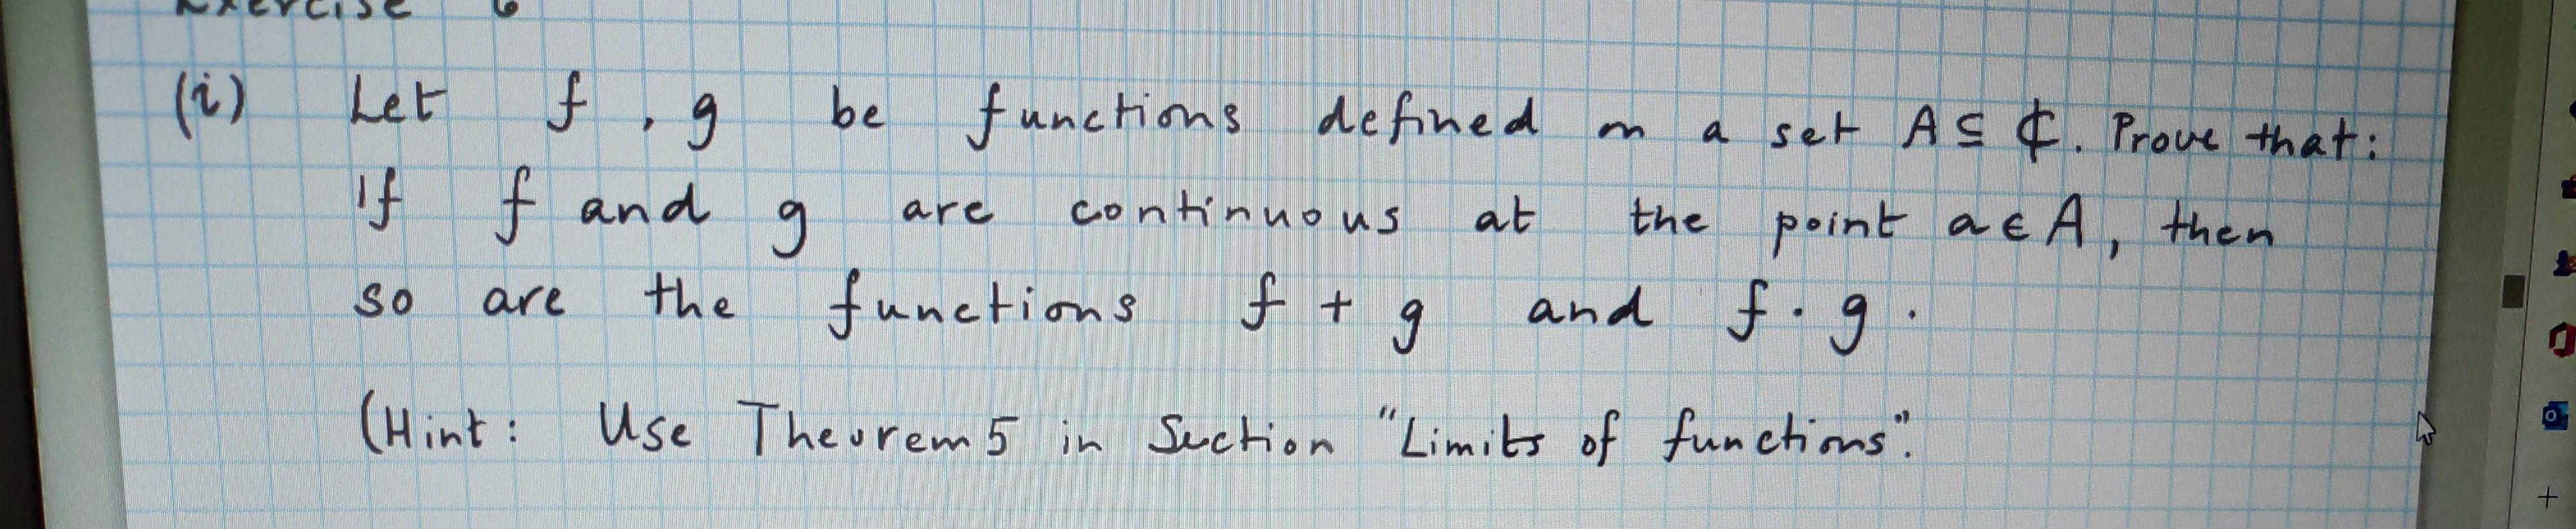 Exercise 6
(i) Let f, g be functions defined on a set A ⊆ ℂ. Prove that:
If f and g are continuous at the point a ∈ A, then
so are the functions f + g and f · g.
(Hint: Use Theorem 5 in Section "Limits of functions".